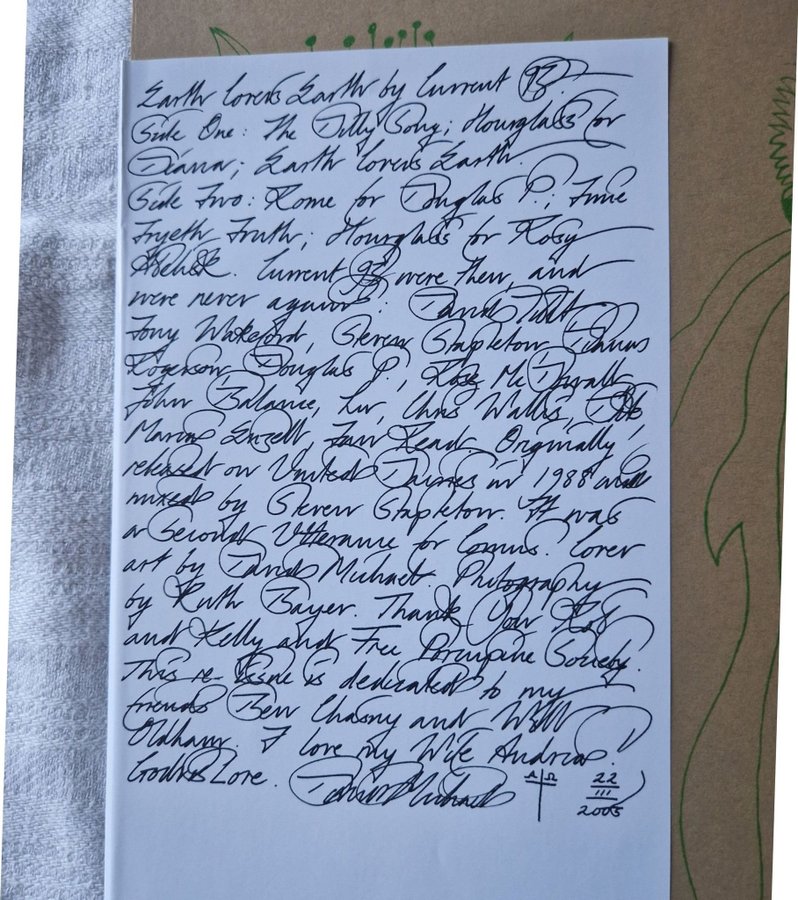 Earth Covers Earth by Current 93.
Side One: The Dilly Song; Hourglass for
Diana; Earth Covers Earth.
Side Two: Rome for Douglas P.; Time
Tryeth Truth; Hourglass for Rosy
Abelisk. Current 93 were then, and
were never again: David Tibet
Tony Wakeford, Steven Stapleton, Diana
Rogerson, Douglas P., Rose McDowall,
John Balance, Liv, Chris Wallis,
Marcus Ian Read. Originally
released on United Dairies in 1988 and
mixed by Steven Stapleton. It was
a Second Utterance for Comus. Cover
art by David Michael. Photography
by Ruth Bayer. Thank You Kat
and Kelly and Free Porcupine Society.
This re-Issue is dedicated to my
friends Ben Chasny and Will
Oldham. I love my Wife Andria.
God Is Love. David Michael Α Ω 22
III
2005